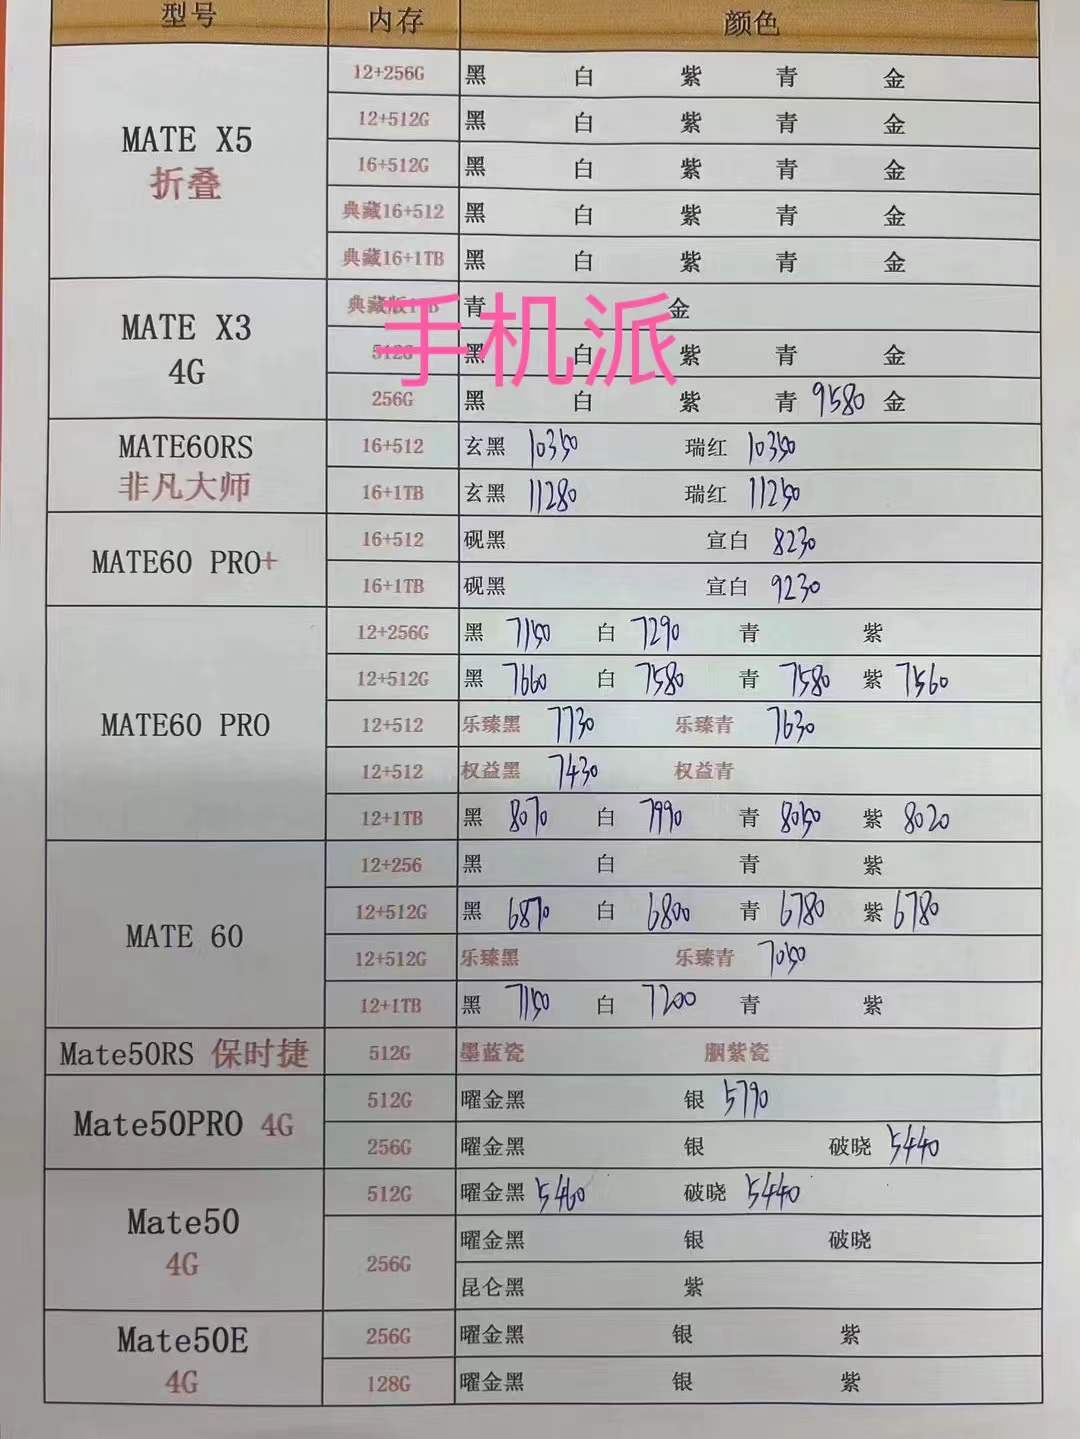 型号 内存 颜色
12+256G 黑 白 紫 青 金
12+512G 黑 白 紫 青 金
MATE X5
折叠
16+512G 黑 白 紫 青 金
典藏16+512 黑 白 紫 青 金
典藏16+1TB 黑 白 紫 青 金
典藏版1TB 青 金
手机派
MATE X3
4G
512G 黑 白 紫 青 金
256G 黑 白 紫 青 9580 金
MATE60RS
非凡大师
16+512 玄黑 10350 瑞红 10350
16+1TB 玄黑 11280 瑞红 11250
MATE60 PRO+
16+512 砚黑 宣白 8230
16+1TB 砚黑 宣白 9230
12+256G 黑 7150 白 7290 青 紫
12+512G 黑 7660 白 7580 青 7580 紫 7560
MATE60 PRO 12+512 乐臻黑 7730 乐臻青 7630
12+512 权益黑 7430 权益青
12+1TB 黑 8070 白 7990 青 8050 紫 8020
12+256 黑 白 青 紫
MATE 60
12+512G 黑 6870 白 6800 青 6780 紫 6780
12+512G 乐臻黑 乐臻青 7050
12+1TB 黑 7150 白 7200 青 紫
Mate50RS 保时捷 512G 墨蓝瓷 胭紫瓷
Mate50PRO 4G
512G 曜金黑 银 5790
256G 曜金黑 银 破晓 5440
Mate50
4G
512G 曜金黑 5460 破晓 5440
256G 曜金黑 银 破晓
昆仑黑 紫
Mate50E
4G
256G 曜金黑 银 紫
128G 曜金黑 银 紫